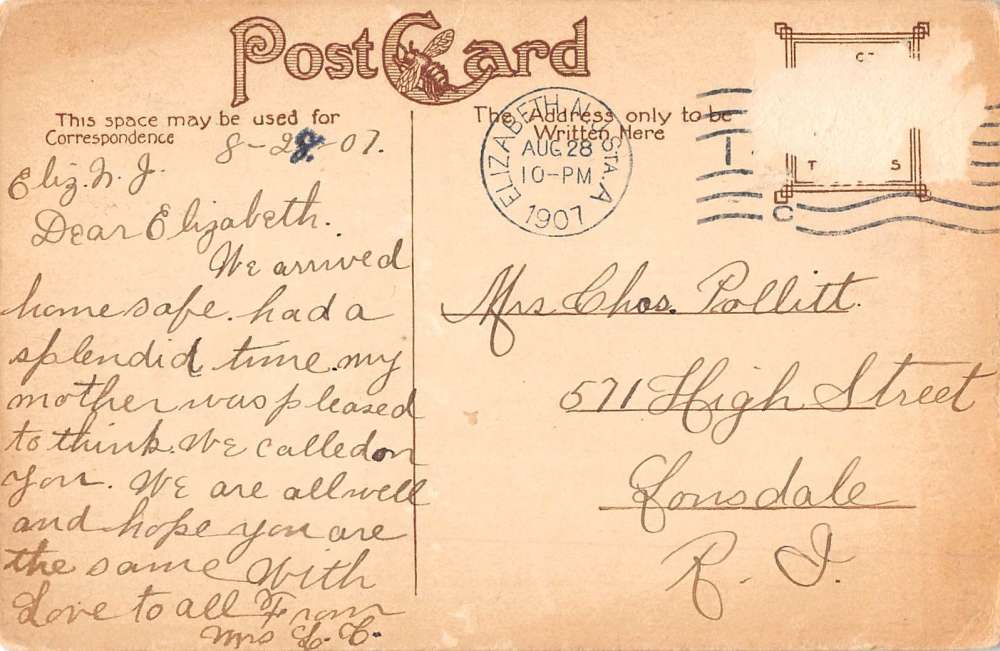 Post Card
This space may be used for
Correspondence
The Address only to be
Written Here
ELIZABETH, N.J. STA. A
AUG 28
10-PM
1907
8-28-07.
Eliz. N. J.
Dear Elizabeth.
We arrived
home safe. had a
splendid time. my
mother was pleased
to think. We called on
you. We are all well
and hope you are
the same With
Love to all From
Mrs L. C.
Mrs Chas. Pollitt.
571 High Street
Lonsdale
R. I.